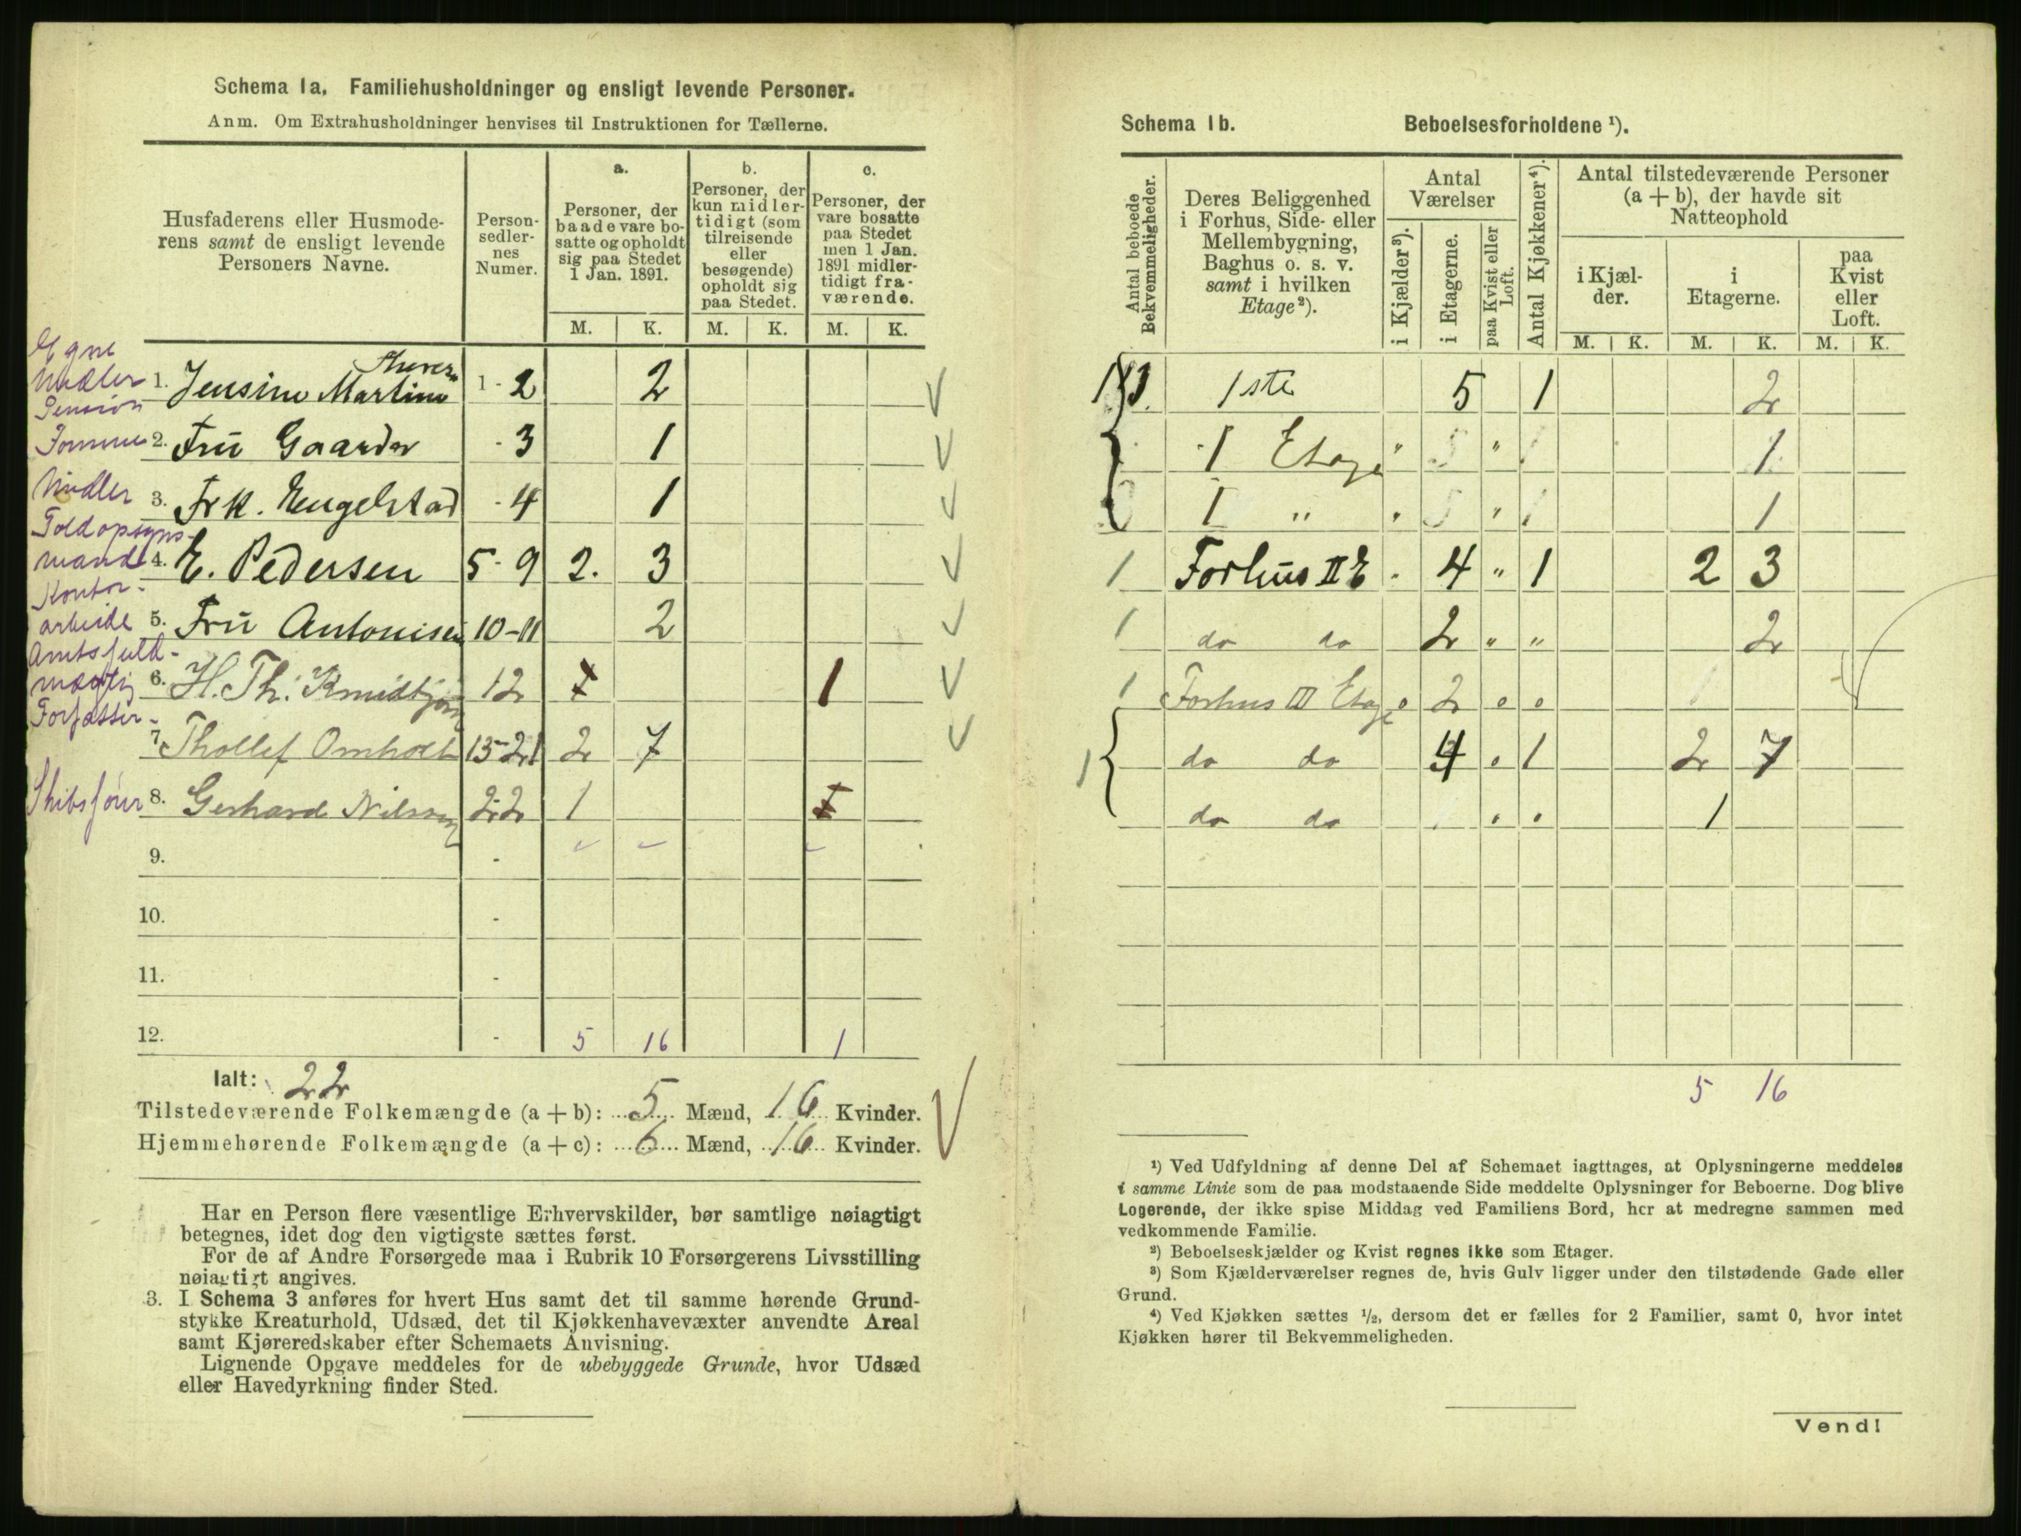 Schema 1a. Familiehusholdninger og ensligt levende Personer.
Anm. Om Extrahusholdninger henvises til Instruktionen for Tællerne.
Husfaderens eller Husmoderens samt de ensligt levende Personers Navne.
Personsedlernes Numer.
a. Personer, der baade vare bosatte og opholdt sig paa Stedet 1 Jan. 1891.
b. Personer, der kun midlertidigt (som tilreisende eller besøgende) opholdt sig paa Stedet.
c. Personer, der vare bosatte paa Stedet men 1 Jan. 1891 midlertidigt fraværende.
M. K. M. K. M. K.
Egne Midler 1. Jensine Martine 1 - 2 2
Pension 2. Fru Gaarder - 3 1
Midler 3. Frk. Engelstad - 4 1
Toldopsynsmand 4. E. Pedersen 5 - 9 2. 3
Kontorarbeide 5. Fru Antonisen 10-11 2
Amtsfuldmægtig 6. H. Th. 12 1
Forfatter 7. Thollef Omholt 13-21 2 7
Skibsfører 8. Gerhard Nilsen 22 1
9. -
10. -
11. -
12. - 5 16 1
Ialt: 22
Tilstedeværende Folkemængde (a + b): 5 Mænd, 16 Kvinder.
Hjemmehørende Folkemængde (a + c): 6 Mænd, 16 Kvinder.
Har en Person flere væsentlige Erhvervskilder, bør samtlige nøiagtigt
betegnes, idet dog den vigtigste sættes først.
For de af Andre Forsørgede maa i Rubrik 10 Forsørgerens Livsstilling
nøiagtigt angives.
3. I Schema 3 anføres for hvert Hus samt det til samme hørende Grund-
stykke Kreaturhold, Udsæd, det til Kjøkkenhavevæxter anvendte Areal
samt Kjøreredskaber efter Schemaets Anvisning.
Lignende Opgave meddeles for de ubebyggede Grunde, hvor Udsæd
eller Havedyrkning finder Sted.
Schema 1b. Beboelsesforholdene ¹).
Antal beboede Bekvemmeligheder.
Deres Beliggenhed i Forhus, Side- eller Mellembygning, Baghus o. s. v. samt i hvilken Etage²).
Antal Værelser
i Kjælder³).
i Etagerne.
paa Kvist eller Loft.
Antal Kjøkkener⁴).
Antal tilstedeværende Personer (a + b), der havde sit Natteophold
i Kjælder.
i Etagerne.
paa Kvist eller Loft.
M. K. M. K. M. K.
1ste 5 1 2
1 Etage " 5 " 1 1
1 " " 5 " 1 1
1 Forhus II E " 4 " 1 2 3
1 do do 2 " " 2
1 Forhus III Etage 0 2 0 0
1 do do 4 0 1 2 7
do do 0 0 1
5 16
¹) Ved Udfyldning af denne Del af Schemaet iagttages, at Oplysningerne meddeles
i samme Linie som de paa modstaaende Side meddelte Oplysninger for Beboerne. Dog blive
Logerende, der ikke spise Middag ved Familiens Bord, her at medregne sammen med
vedkommende Familie.
²) Beboelseskjælder og Kvist regnes ikke som Etager.
³) Som Kjælderværelser regnes de, hvis Gulv ligger under den tilstødende Gade eller
Grund.
⁴) Ved Kjøkken sættes ½, dersom det er fælles for 2 Familier, samt 0, hvor intet
Kjøkken hører til Bekvemmeligheden.
Vend!